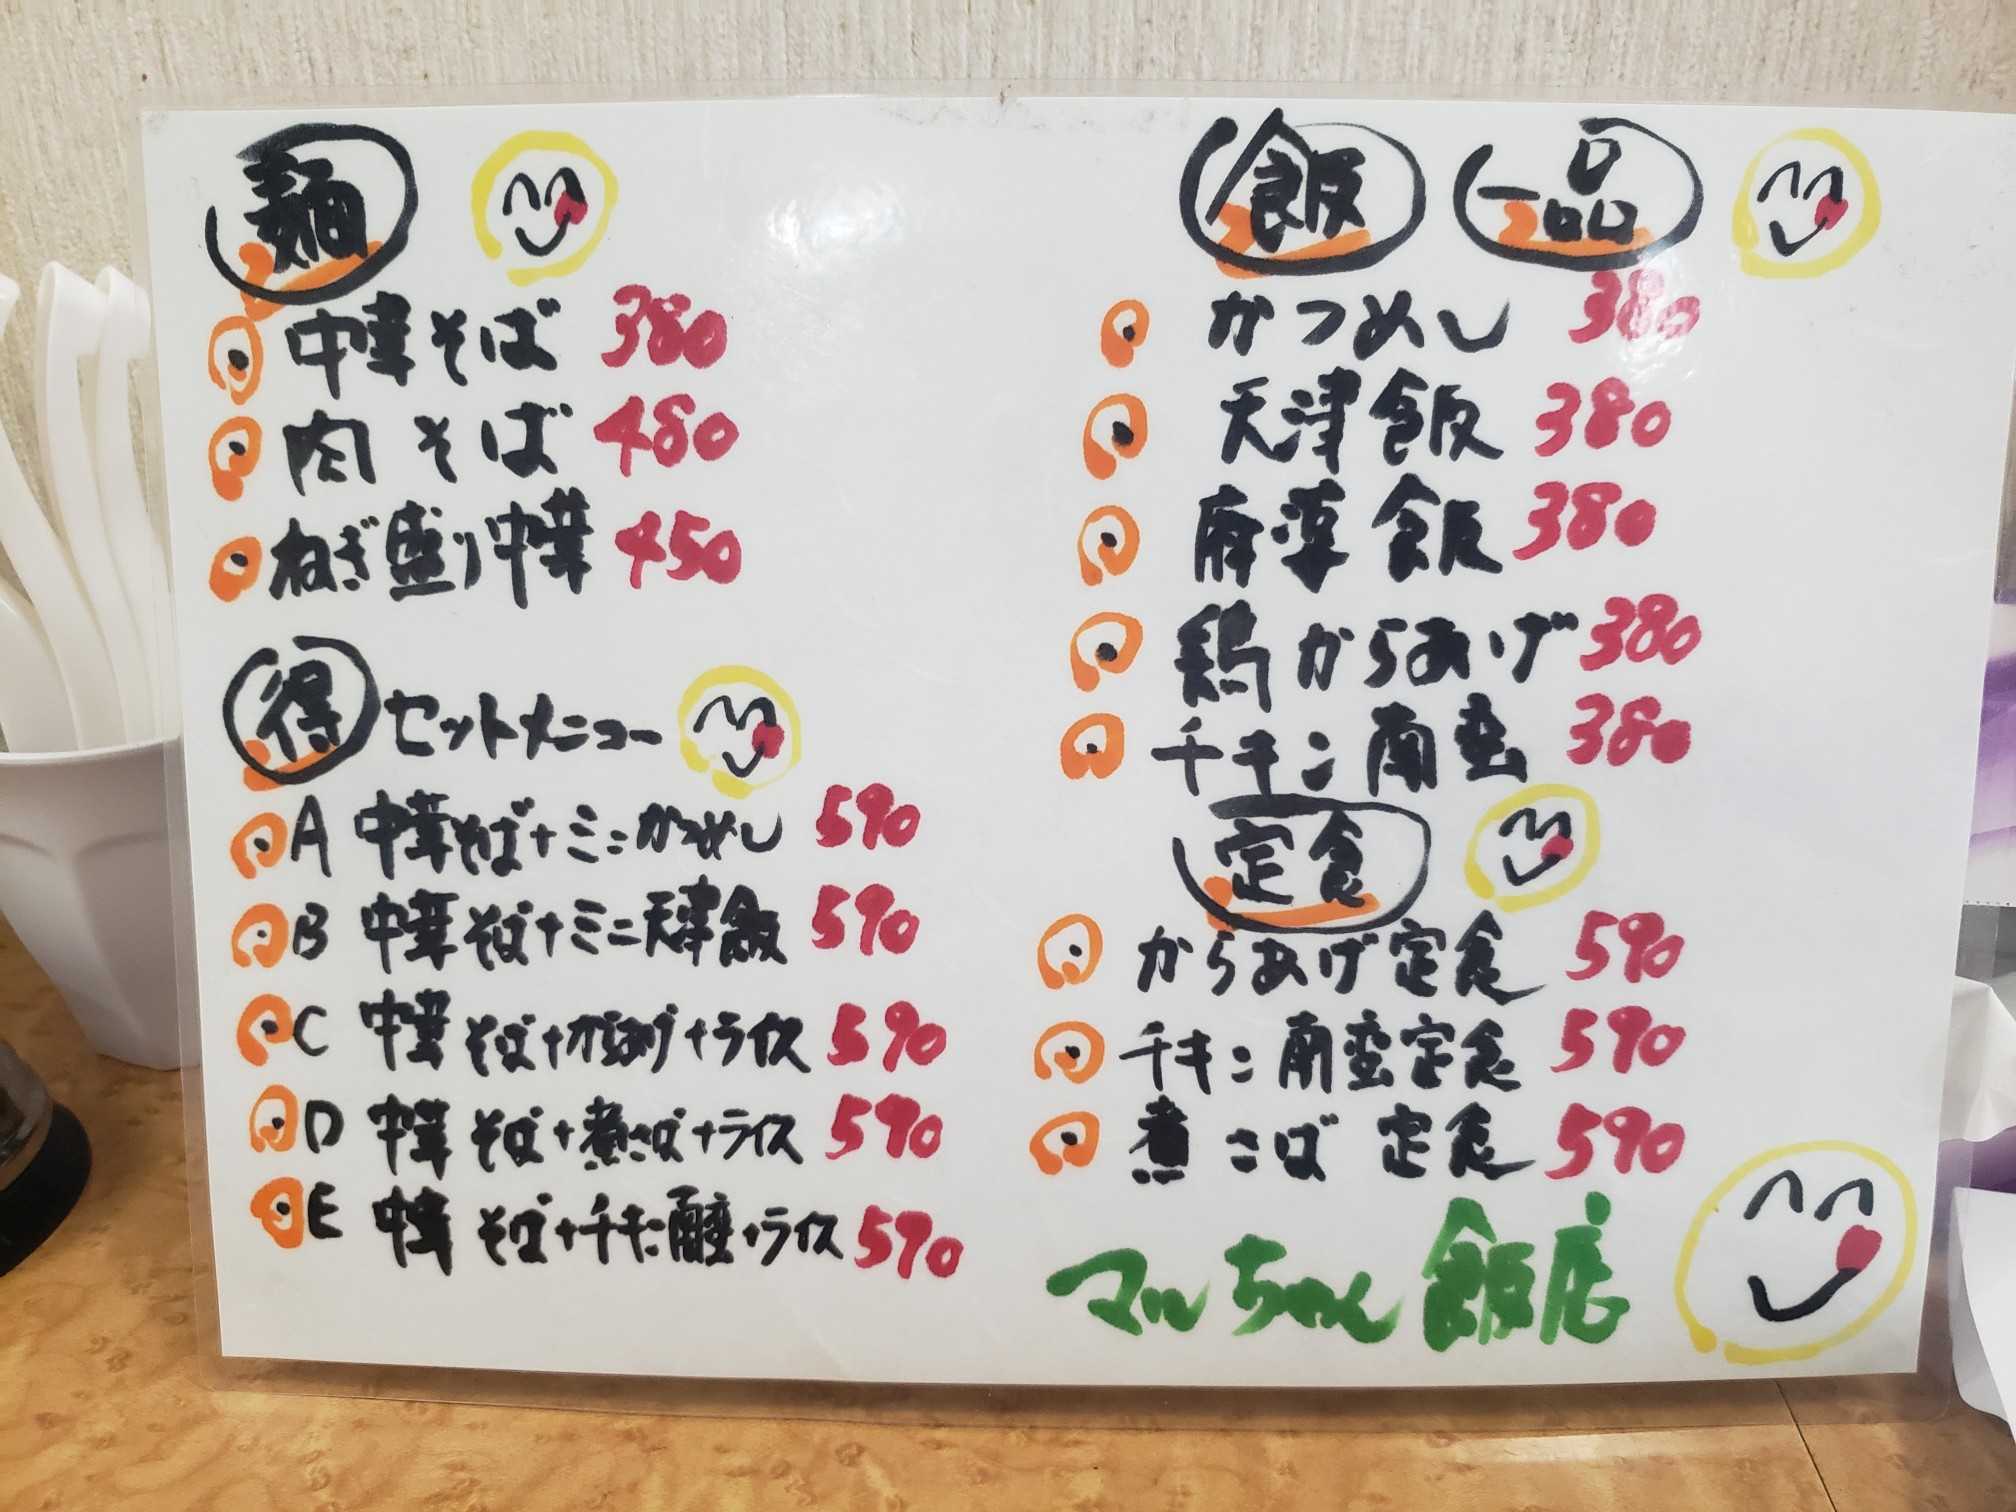 麺
中華そば 380
肉そば 480
ねぎ盛り中華 450
得 セットメニュー
A 中華そば+ミニかつめし 590
B 中華そば+ミニ天津飯 590
C 中華そば+からあげ+ライス 590
D 中華そば+煮さば+ライス 590
E 中華そば+チキン南蛮+ライス 590
飯 一品
かつめし 380
天津飯 380
麻婆飯 380
鶏からあげ 380
チキン南蛮 380
定食
からあげ定食 590
チキン南蛮定食 590
煮さば定食 590
マルちゃん飯店